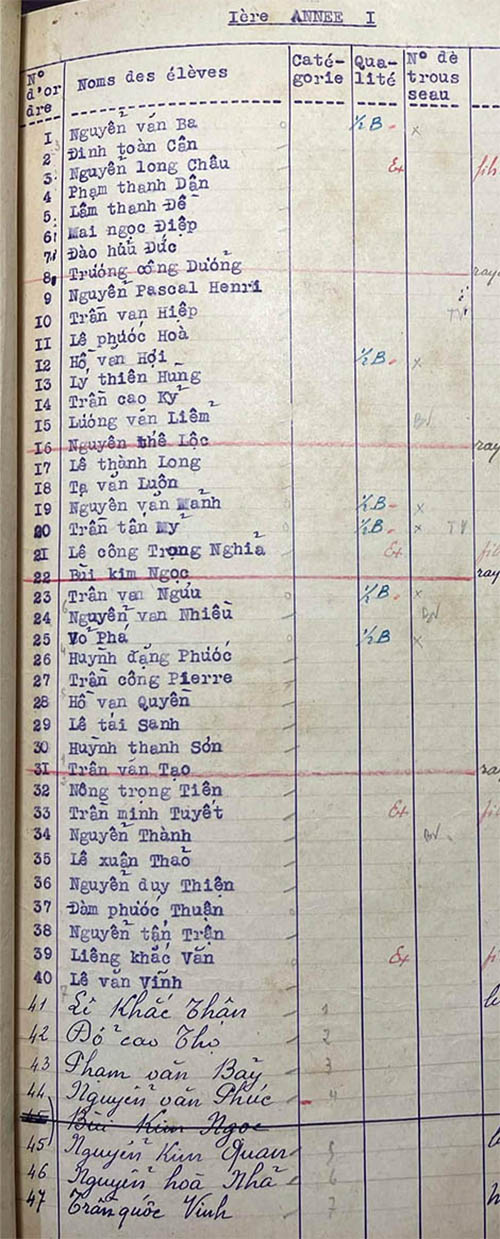 Ière ANNEE I
N° d'or dre Noms des élèves Caté- gorie Qua- lité N° de trous seau
1 Nguyễn văn Ba ½B - x
2 Đinh toàn Cân
3 Nguyễn long Châu Ex
4 Phạm thanh Dân
5 Lâm thanh Đề
6 Mai ngọc Điệp
7 Đào hữu Đức
8 Trương công Dưởng
9 Nguyễn Pascal Henri
10 Trần van Hiệp
11 Lê phước Hoà
12 Hồ văn Hợi ½B - x
13 Lý thiên Hùng
14 Trần cao Kỷ
15 Lương văn Liêm
16 Nguyên thế Lộc
17 Lê thành Long
18 Tạ văn Luôn
19 Nguyên văn Mảnh ½B - x
20 Trần tấn Mỹ ½B - x
21 Lê công Trọng Nghỉa Ex
22 Bùi kim Ngọc
23 Trần van Ngưu ½B - x
24 Nguyễn van Nhiều
25 Vỏ Pha ½B x
26 Huỳnh đặng Phước
27 Trần công Pierre
28 Hồ vạn Quyền
29 Lê tài Sanh
30 Huỳnh thanh Sơn
31 Trần văn Tạo
32 Nông trọng Tiên
33 Trần minh Tuyết Ex
34 Nguyễn Thành
35 Lê xuận Thảo
36 Nguyễn duy Thiện
37 Đàm phước Thuận
38 Nguyễn tấn Trận
39 Liêng khắc Văn Ex
40 Lê văn Vĩnh
41 Lê Khắc Thận 1
42 Đổ cao Thọ 2
43 Phạm văn Bảy 3
44 Nguyễn văn Phúc 4
45 Bùi Kim Ngọc
45 Nguyễn Kim Quan 5
46 Nguyễn hoà Nhã 6
47 Trần quốc Vinh 7